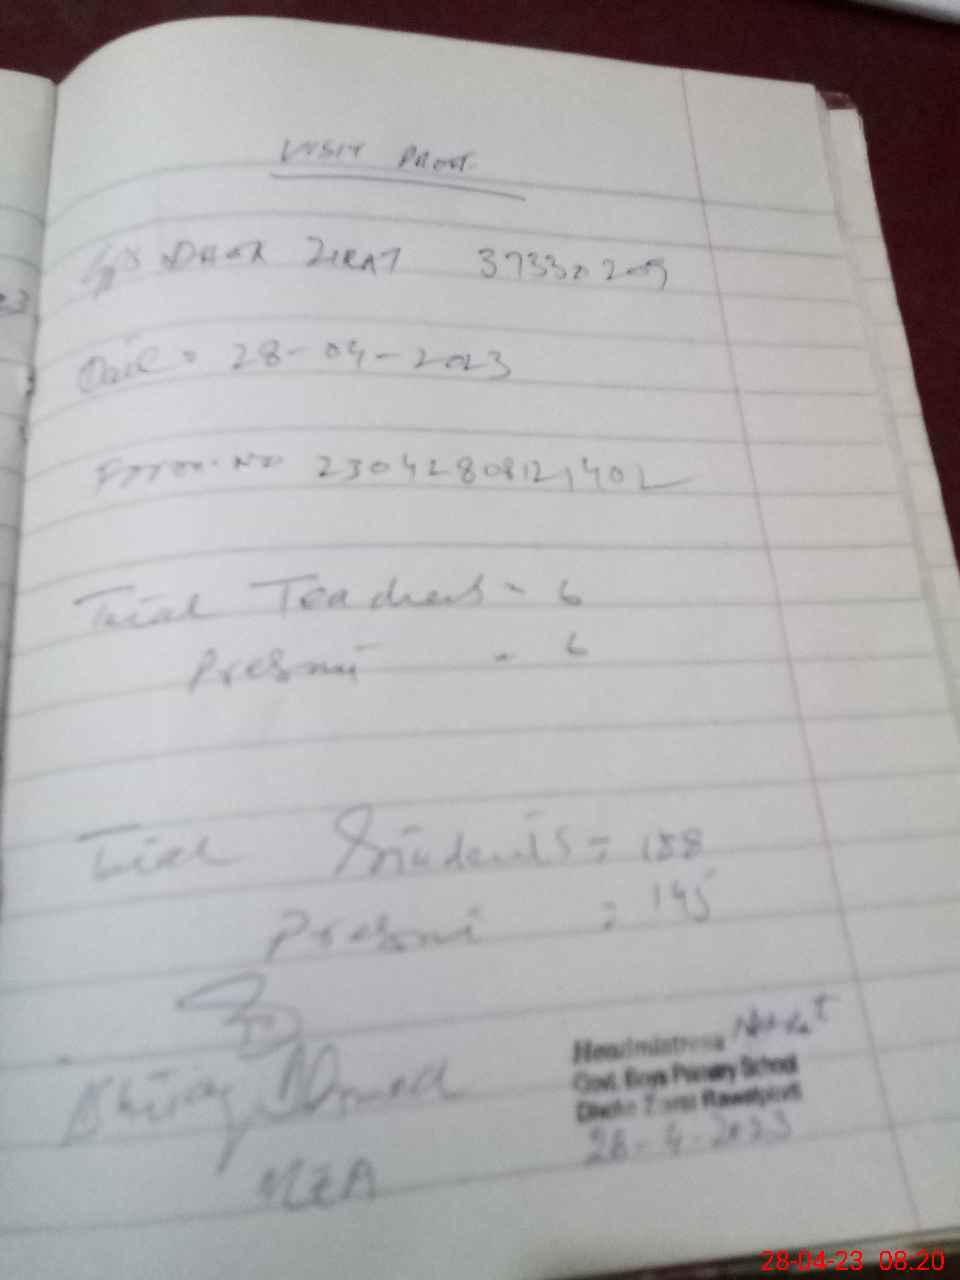 VISIT PROOF
ZIRAT 37330209
Date = 28-04-2023
Form No 23042808121402
Total Teachers - 6
Present - 6
Total Students = 158
Present = 145
Ahmed
MEA
Headmistress
Govt. Boys Primary School
Rawalpindi
28-4-2023
28-04-23 08:20